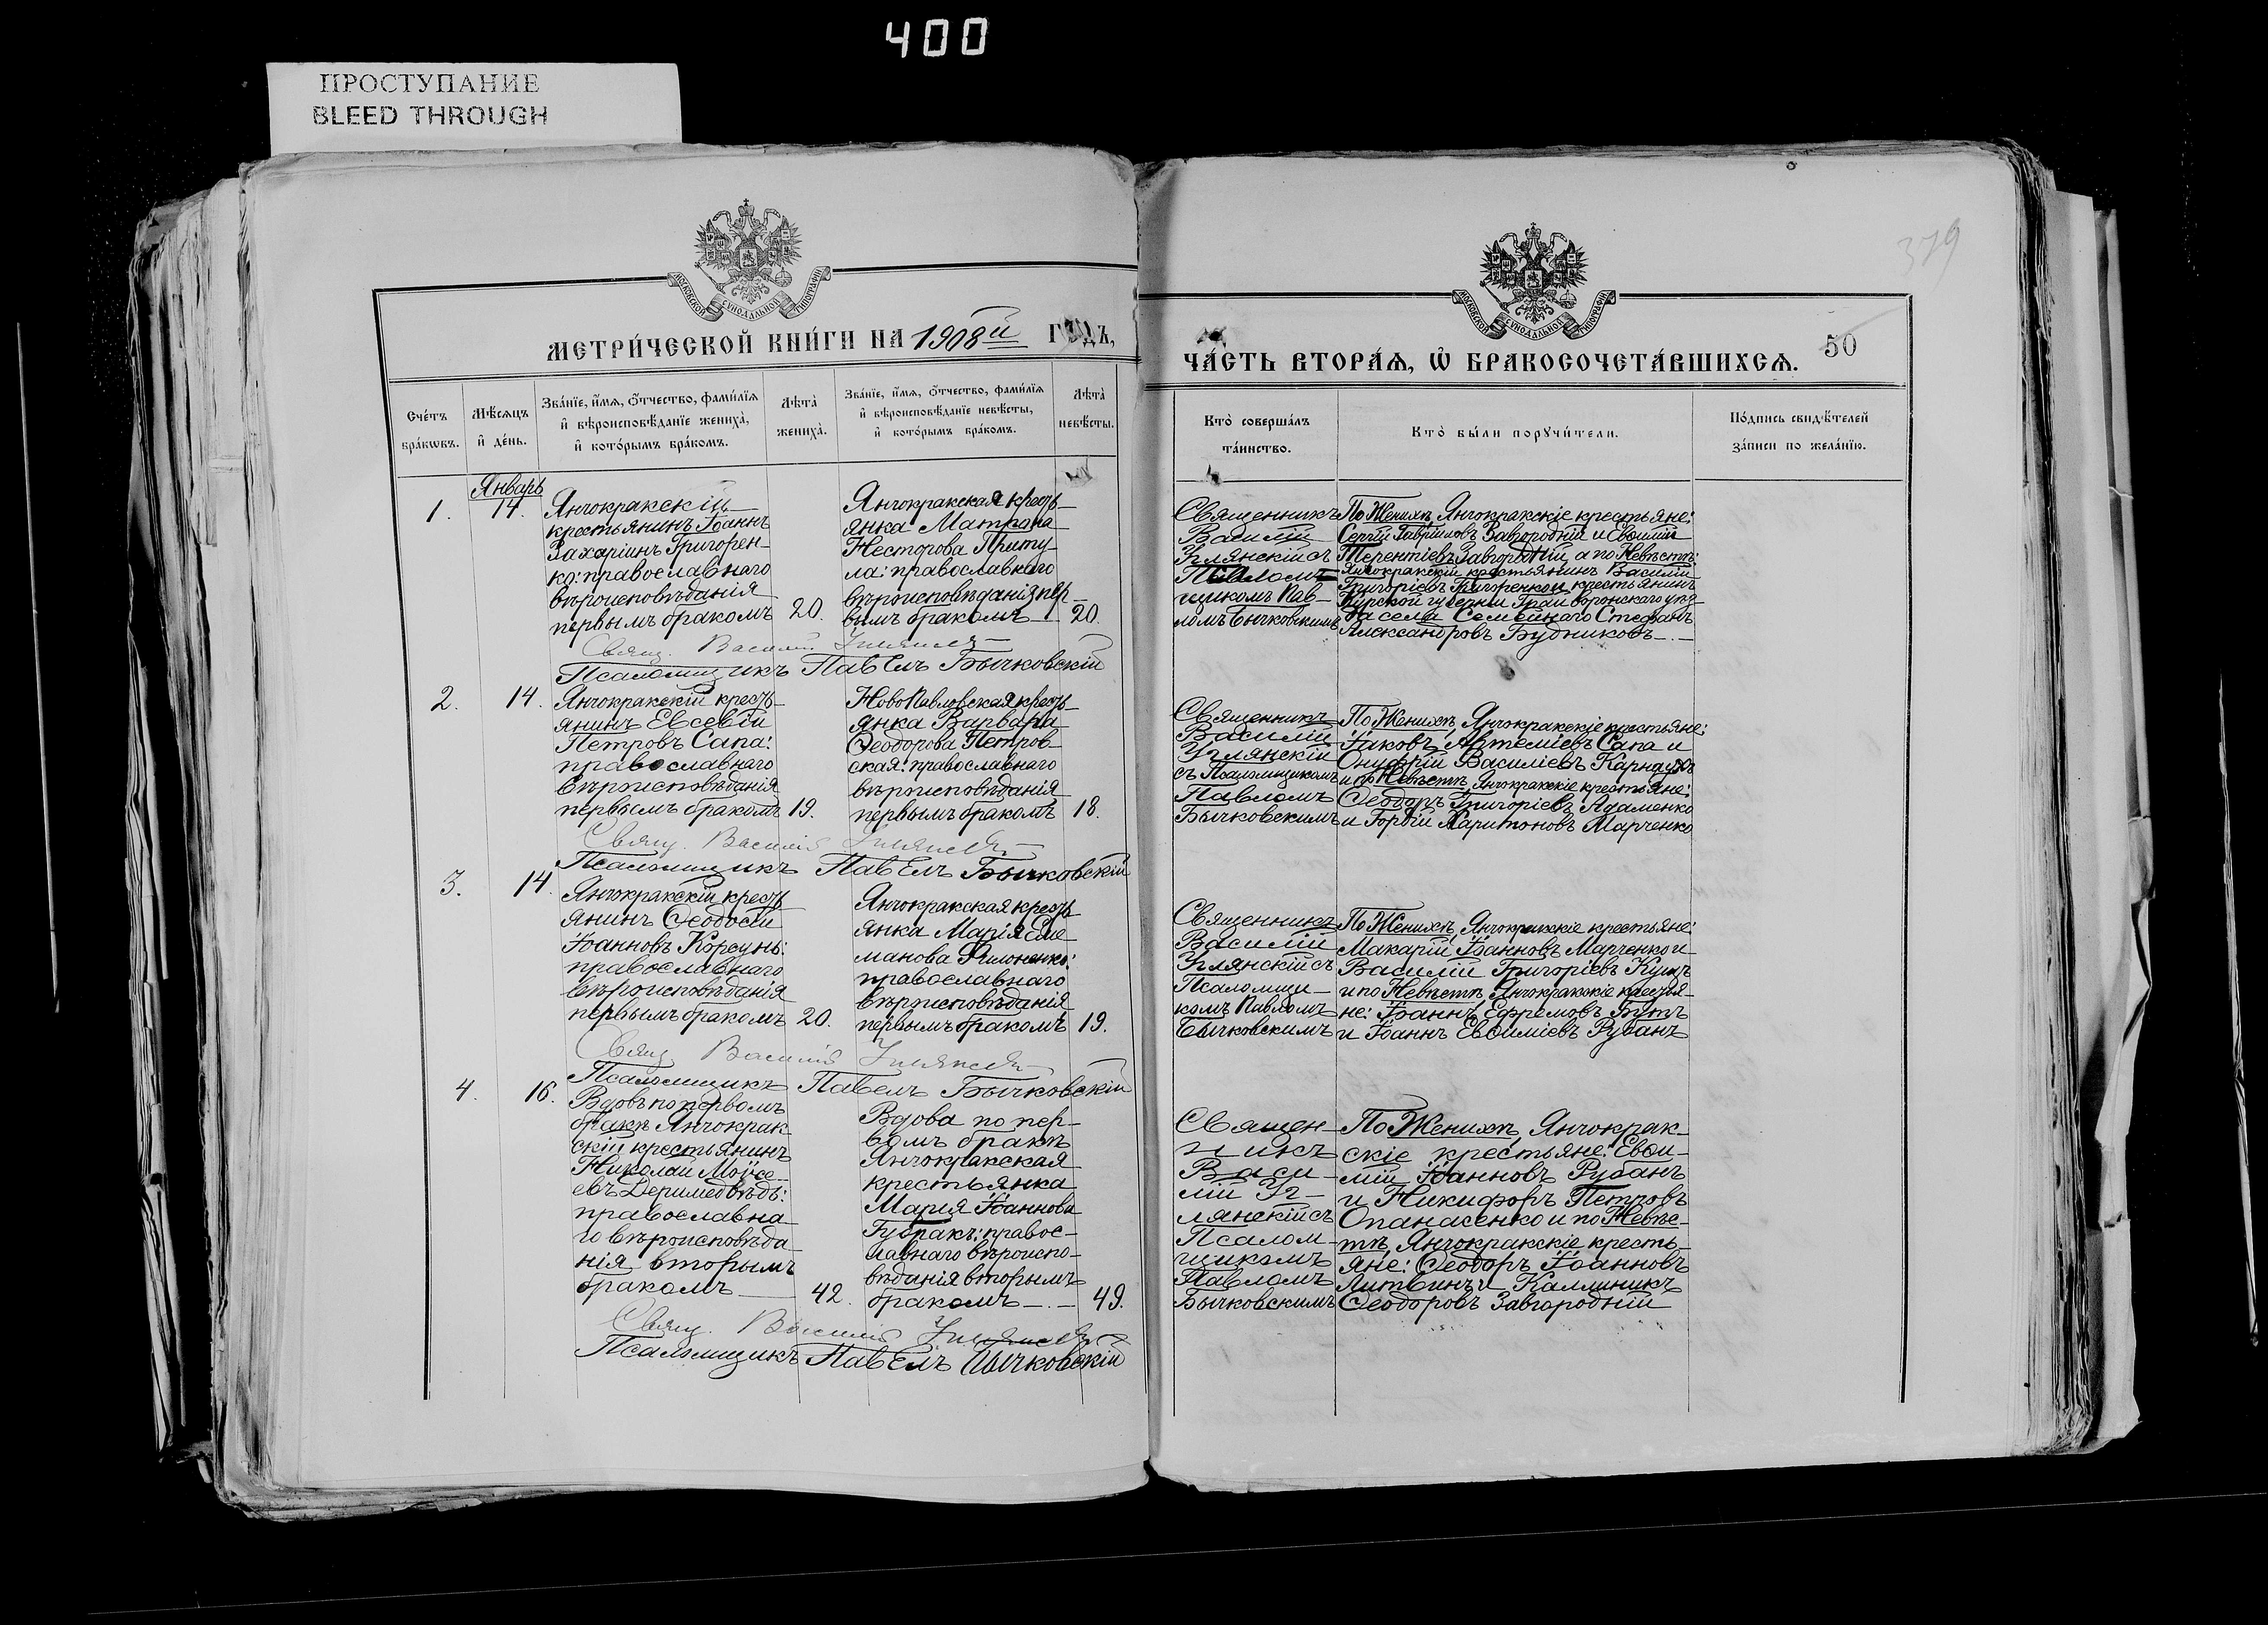 400
ПРОСТУПАНИЕ
BLEED THROUGH
379
МОСКОВСКОЙ СѴНОДАЛЬНОЙ ТИПОГРАФІИ
МОСКОВСКОЙ СѴНОДАЛЬНОЙ ТИПОГРАФІИ
МЕТРИ́ЧЕСКОЙ КНИ́ГИ НА 1908й ГОДЪ,
ЧА́СТЬ ВТОРА́Ѧ, Ѡ БРАКОСОЧЕТА́ВШИХСѦ. 50
Сче́тъ бра́кѡвъ.
Мѣ́сѧцъ и҆ де́нь.
Зва́нїе, и҆́мѧ, ѻ҆́тчество, фами́лїѧ
и҆ вѣроисповѣ́данїе жениха̀,
и҆ кото́рымъ бра́комъ.
Лѣ́та̀ жениха̀.
Зва́нїе, и҆́мѧ, ѻ҆́тчество, фами́лїѧ
и҆ вѣроисповѣ́данїе невѣ́сты,
и҆ кото́рымъ бра́комъ.
Лѣ́та̀ невѣ́сты.
Кто̀ соверша́лъ
та́инство.
Кто̀ бы́ли порꙋчи́тели.
По́дпись свидѣ́телей
за́писи по жела́нїю.
Январь
1. 14.
Янчокракскій
крестьянинъ Іоаннъ
Захаріинъ Григорен-
ко: православнаго
вѣроисповѣданія
первымъ бракомъ 20.
Янчокракская кресть-
янка Матрона
Несторова Приту-
ла: православнаго
вѣроисповѣданія пер-
вымъ бракомъ 20.
Священникъ
Василій
Углянскій съ
Псалом-
щикомъ Пав-
ломъ Бычковскимъ
По Женихѣ Янчокракскіе крестьяне:
Сергій Гавріиловъ Завгородній и Евѳимій
Терентіевъ Завгородній, а по Невѣстѣ:
Янчокракскій крестьянинъ Василій
Григоріевъ Григоренко и крестьянинъ
Курской губерніи Грайворонскаго уѣз-
да села Стефанъ
Александровъ Будниковъ
Свящ. Василій Углянскій
Псаломщикъ Павелъ Бычковскій
2. 14.
Янчокракскій кресть-
янинъ Евсевій
Петровъ Сапа:
православнаго
вѣроисповѣданія
первымъ бракомъ 19.
НовоПавловская кресть-
янка Варвара
Ѳеодорова Петров-
ская: православнаго
вѣроисповѣданія
первымъ бракомъ 18.
Священникъ
Василій
Углянскій
съ Псаломщикомъ
Павломъ
Бычковскимъ
По Женихѣ Янчокракскіе крестьяне:
Іаковъ Артеміевъ Сапа и
Онуфрій Василіевъ Карнаухъ
и по Невѣстѣ Янчокракскіе крестьяне:
Ѳеодоръ Григоріевъ Адаменко
и Гордій Харитоновъ Марченко
Свящ. Василій Углянскій
Псаломщикъ Павелъ Бычковскій
3. 14.
Янчокракскій кресть-
янинъ Ѳеодосій
Іоанновъ Корсунь:
православнаго
вѣроисповѣданія
первымъ бракомъ 20.
Янчокракская кресть-
янка Марія Еме-
Филоненко:
православнаго
вѣроисповѣданія
первымъ бракомъ 19.
Священникъ
Василій
Углянскій съ
Псаломщи-
комъ Павломъ
Бычковскимъ
По Женихѣ Янчокракскіе крестьяне:
Макарій Іоанновъ Марченко и
Василій Григоріевъ Кущъ
и по Невѣстѣ Янчокракскіе крестья-
не: Іоаннъ Ефремовъ Бутъ
и Іоаннъ Евѳиміевъ Рубанъ
Свящ. Василій Углянскій
Псаломщикъ Павелъ Бычковскій
4. 16.
Вдовъ по первомъ
бракѣ Янчокрак-
скій крестьянинъ
Николай Мойсе-
евъ Деримедвѣдь:
православна-
го вѣроисповѣда-
нія вторымъ
бракомъ 42.
Вдова по пер-
вомъ бракѣ
Янчокракская
крестьянка
Марія Іоаннова
Губракъ: правос-
лавнаго вѣроиспо-
вѣданія вторымъ
бракомъ 49.
Священ-
никъ
Васи-
лій Уг-
лянскій съ
Псалом-
щикомъ
Павломъ
Бычковскимъ
По Женихѣ Янчокрак-
скіе крестьяне: Евѳи-
мій Іоанновъ Рубанъ
и Никифоръ Петровъ
Опанасенко и по Невѣс-
тѣ Янчокракскіе кресть-
яне: Ѳеодоръ Іоанновъ
Литвинъ и Каллиникъ
Ѳеодоровъ Завгородній
Свящ. Василій Углянскій
Псаломщикъ Павелъ Бычковскій